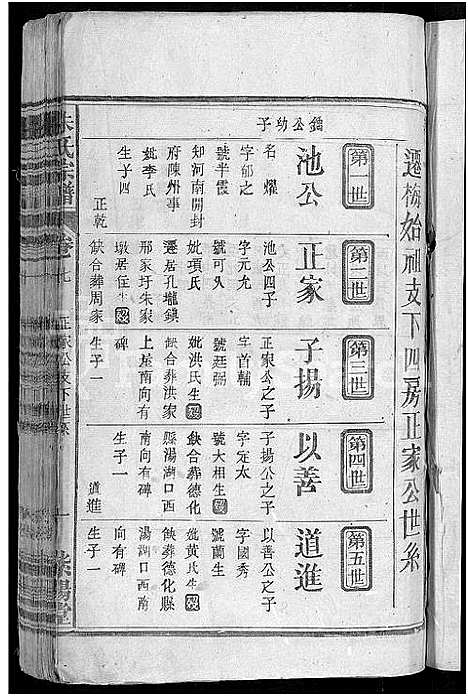 遷梅始祖支下四房正家公世系
鐳公幼子
第一世
池公
名燿
字郁之
號半霞
知河南開封
府陳州事
妣李氏
生子四
正乾
第二世
正家
池公四子
字元允
號可久
妣項氏
遷居孔壠鎮
邢家圩朱家
墩居住生歿
缺合葬周家
第三世
子揚
正家公之子
字首輔
號廷弼
妣洪氏生歿
缺合葬洪家
上屋南向有
碑
生子一
第四世
以善
子揚公之子
字定太
號大相生歿
缺合葬德化
縣湯湖口西
南向有碑
生子一
道進
第五世
道進
以善公之子
字國秀
號蘭生
妣黃氏生歿
缺葬德化縣
湯湖口西南
向有碑
生子一
朱氏宗譜
卷七
正家公支下世系
十
紫陽堂